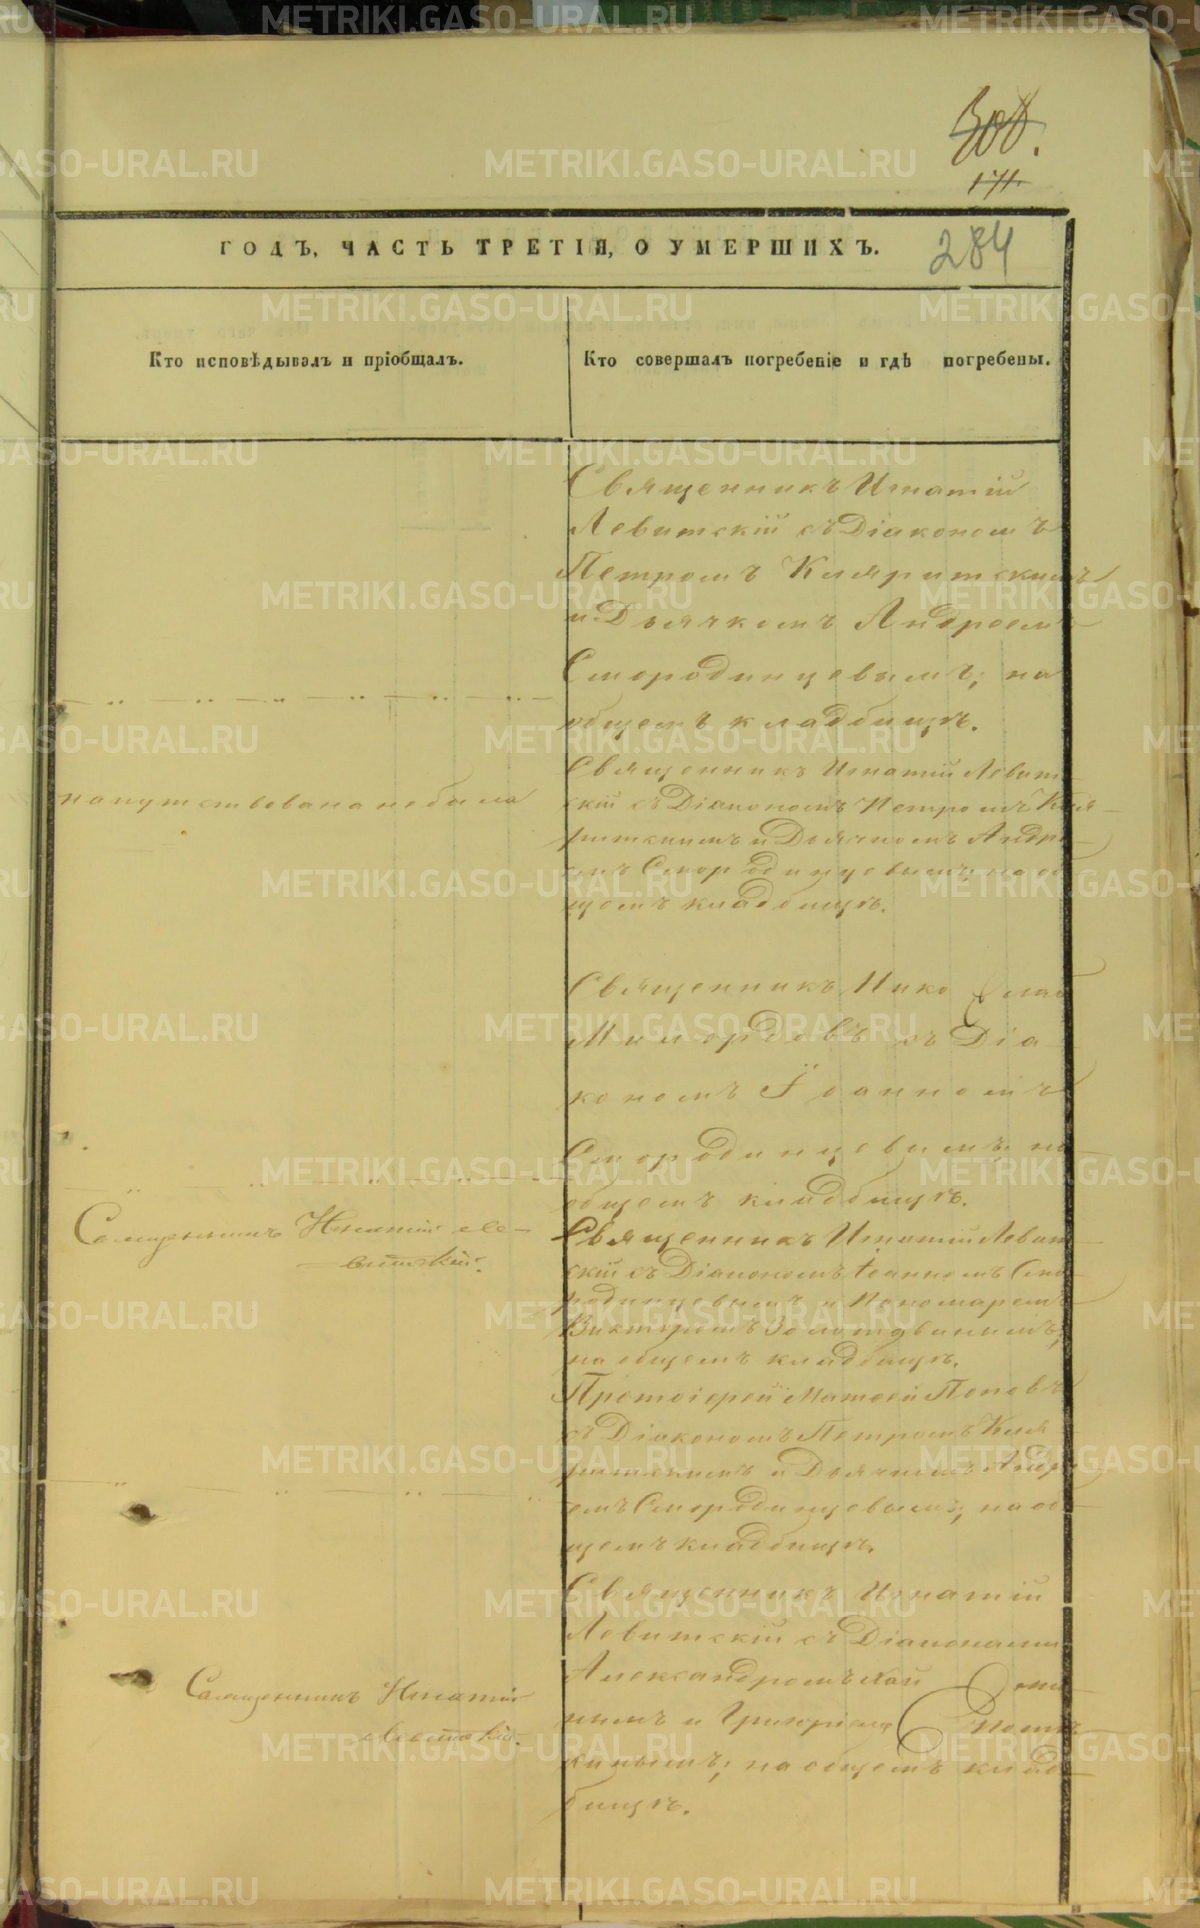 308.
171.
ГОДЪ, ЧАСТЬ ТРЕТІЯ, О УМЕРШИХЪ.
284
Кто исповѣдывалъ и пріобщалъ.
Кто совершалъ погребеніе и гдѣ погребены.
Священникъ Игнатій
Левитскій съ Діакономъ
Петромъ Кляритскимъ
и Дьячкомъ Андреемъ
Смородинцевымъ; на
общемъ кладбищѣ.
напутствована не была
Священникъ Игнатій Левит-
скій съ Діакономъ Петромъ Кля-
ритскимъ и Дьячкомъ Андре-
емъ Смородинцевымъ; на об-
щемъ кладбищѣ.
Священникъ Николай
Милордовъ съ Діа-
кономъ Іоанномъ
Смородинцевымъ; на
общемъ кладбищѣ.
Священникъ Игнатій Ле-
витскій.
Священникъ Игнатій Левит-
скій съ Діакономъ Іоанномъ Смо-
родинцевымъ и Пономаремъ
Викторомъ Золотавинымъ;
на общемъ кладбищѣ.
Протоіерей Матѳей Поповъ
съ Діакономъ Петромъ Кля-
ритскимъ и Дьячкомъ Андре-
емъ Смородинцевымъ; на об-
щемъ кладбищѣ.
Священникъ Игнатій
Левитскій съ Діаконами
Александромъ
и Григоріемъ
на общемъ клад-
бищѣ.
Священникъ Игнатій
Левитскій.
METRIKI.GASO-URAL.RU